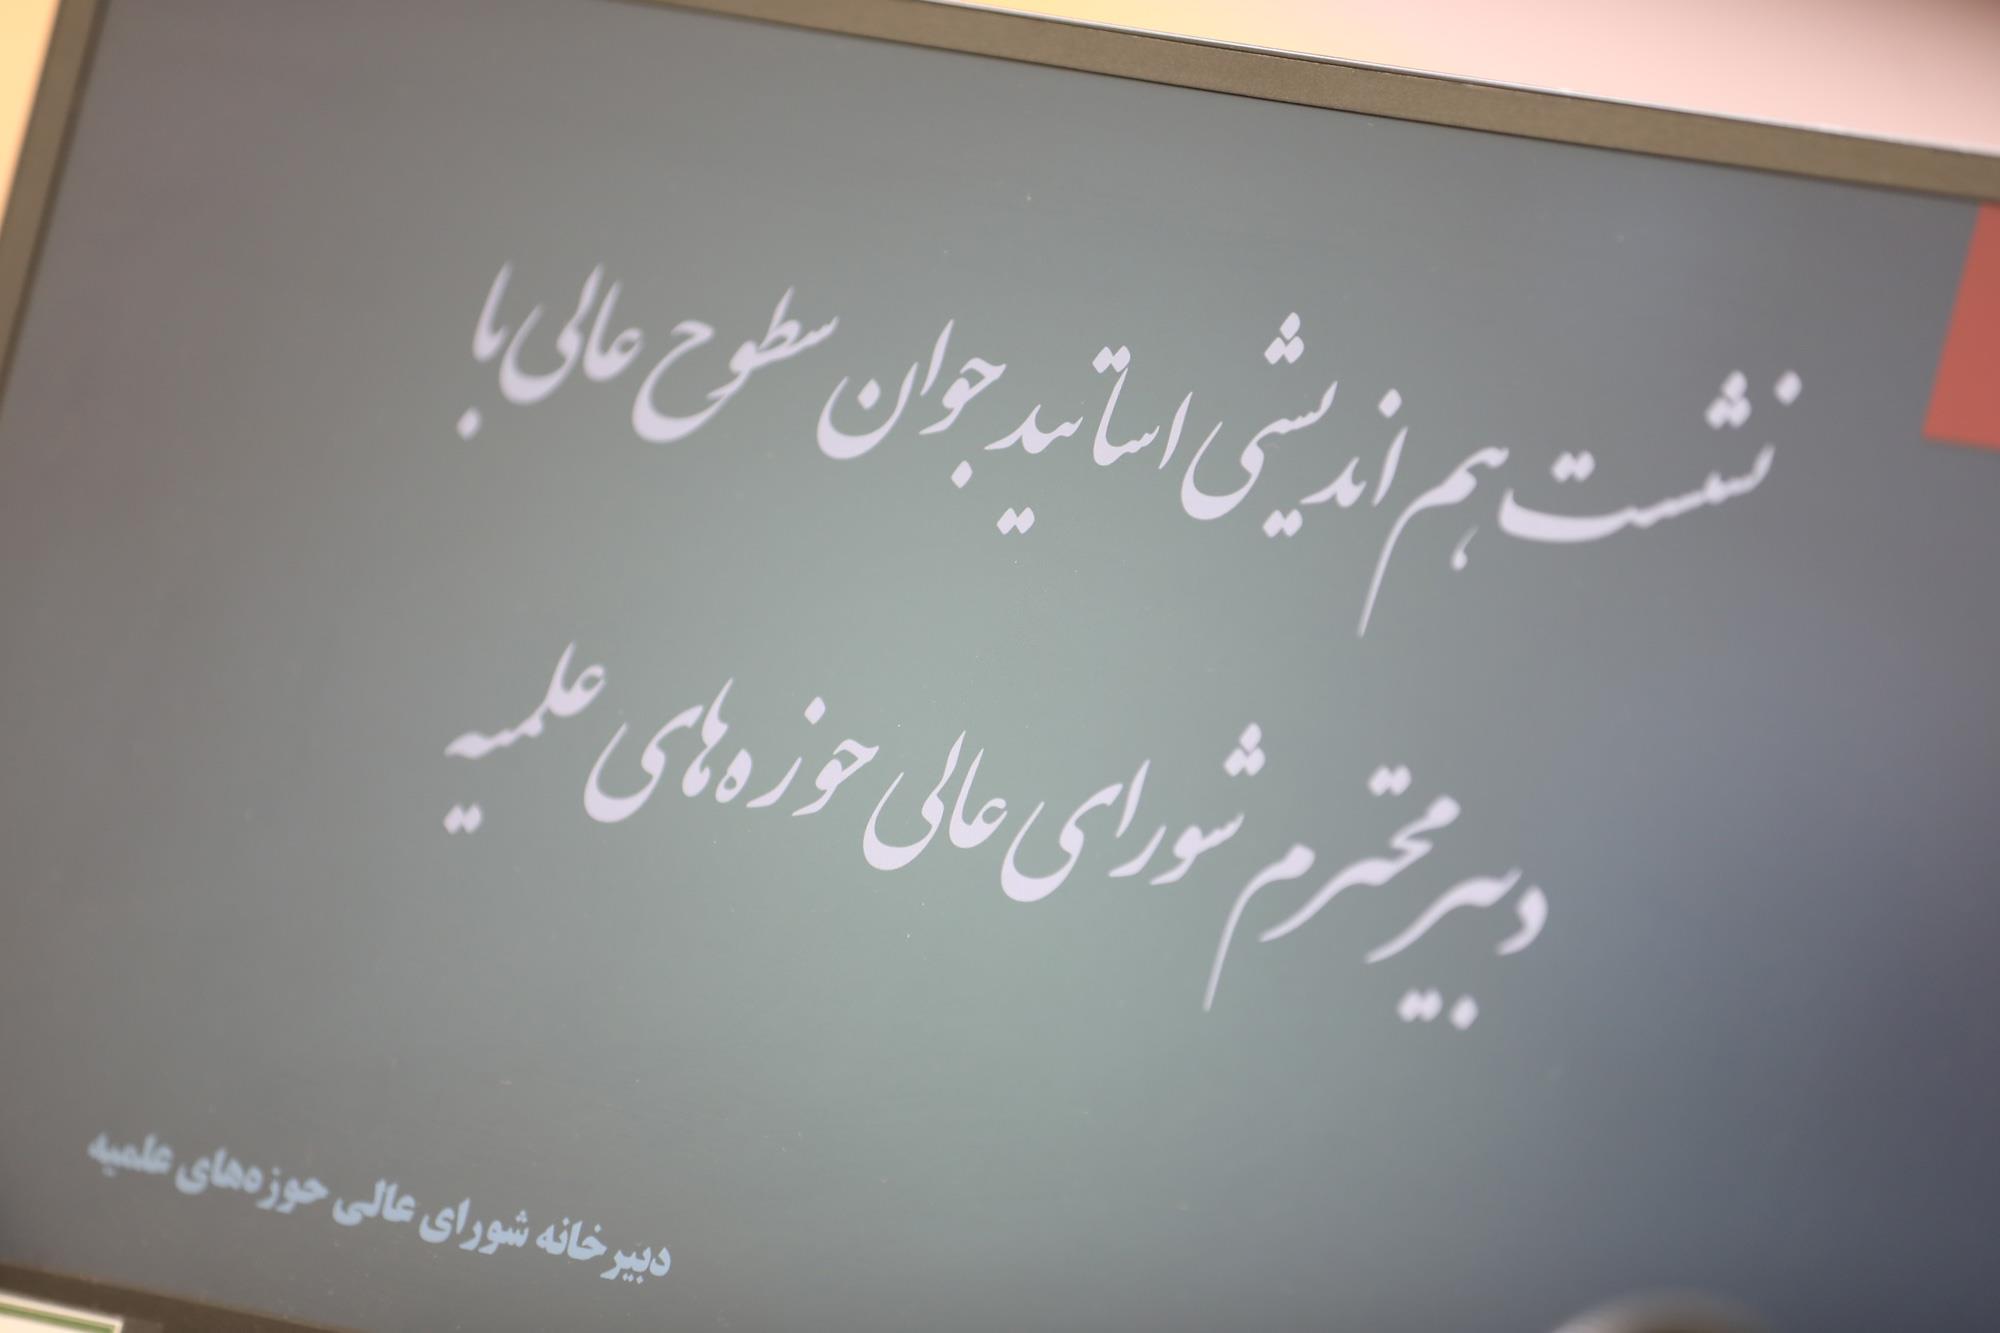 نشست هم اندیشی اساتید جوان سطوح عالی با
دبیر محترم شورای عالی حوزه‌های علمیه
دبیرخانه شورای عالی حوزه‌های علمیه